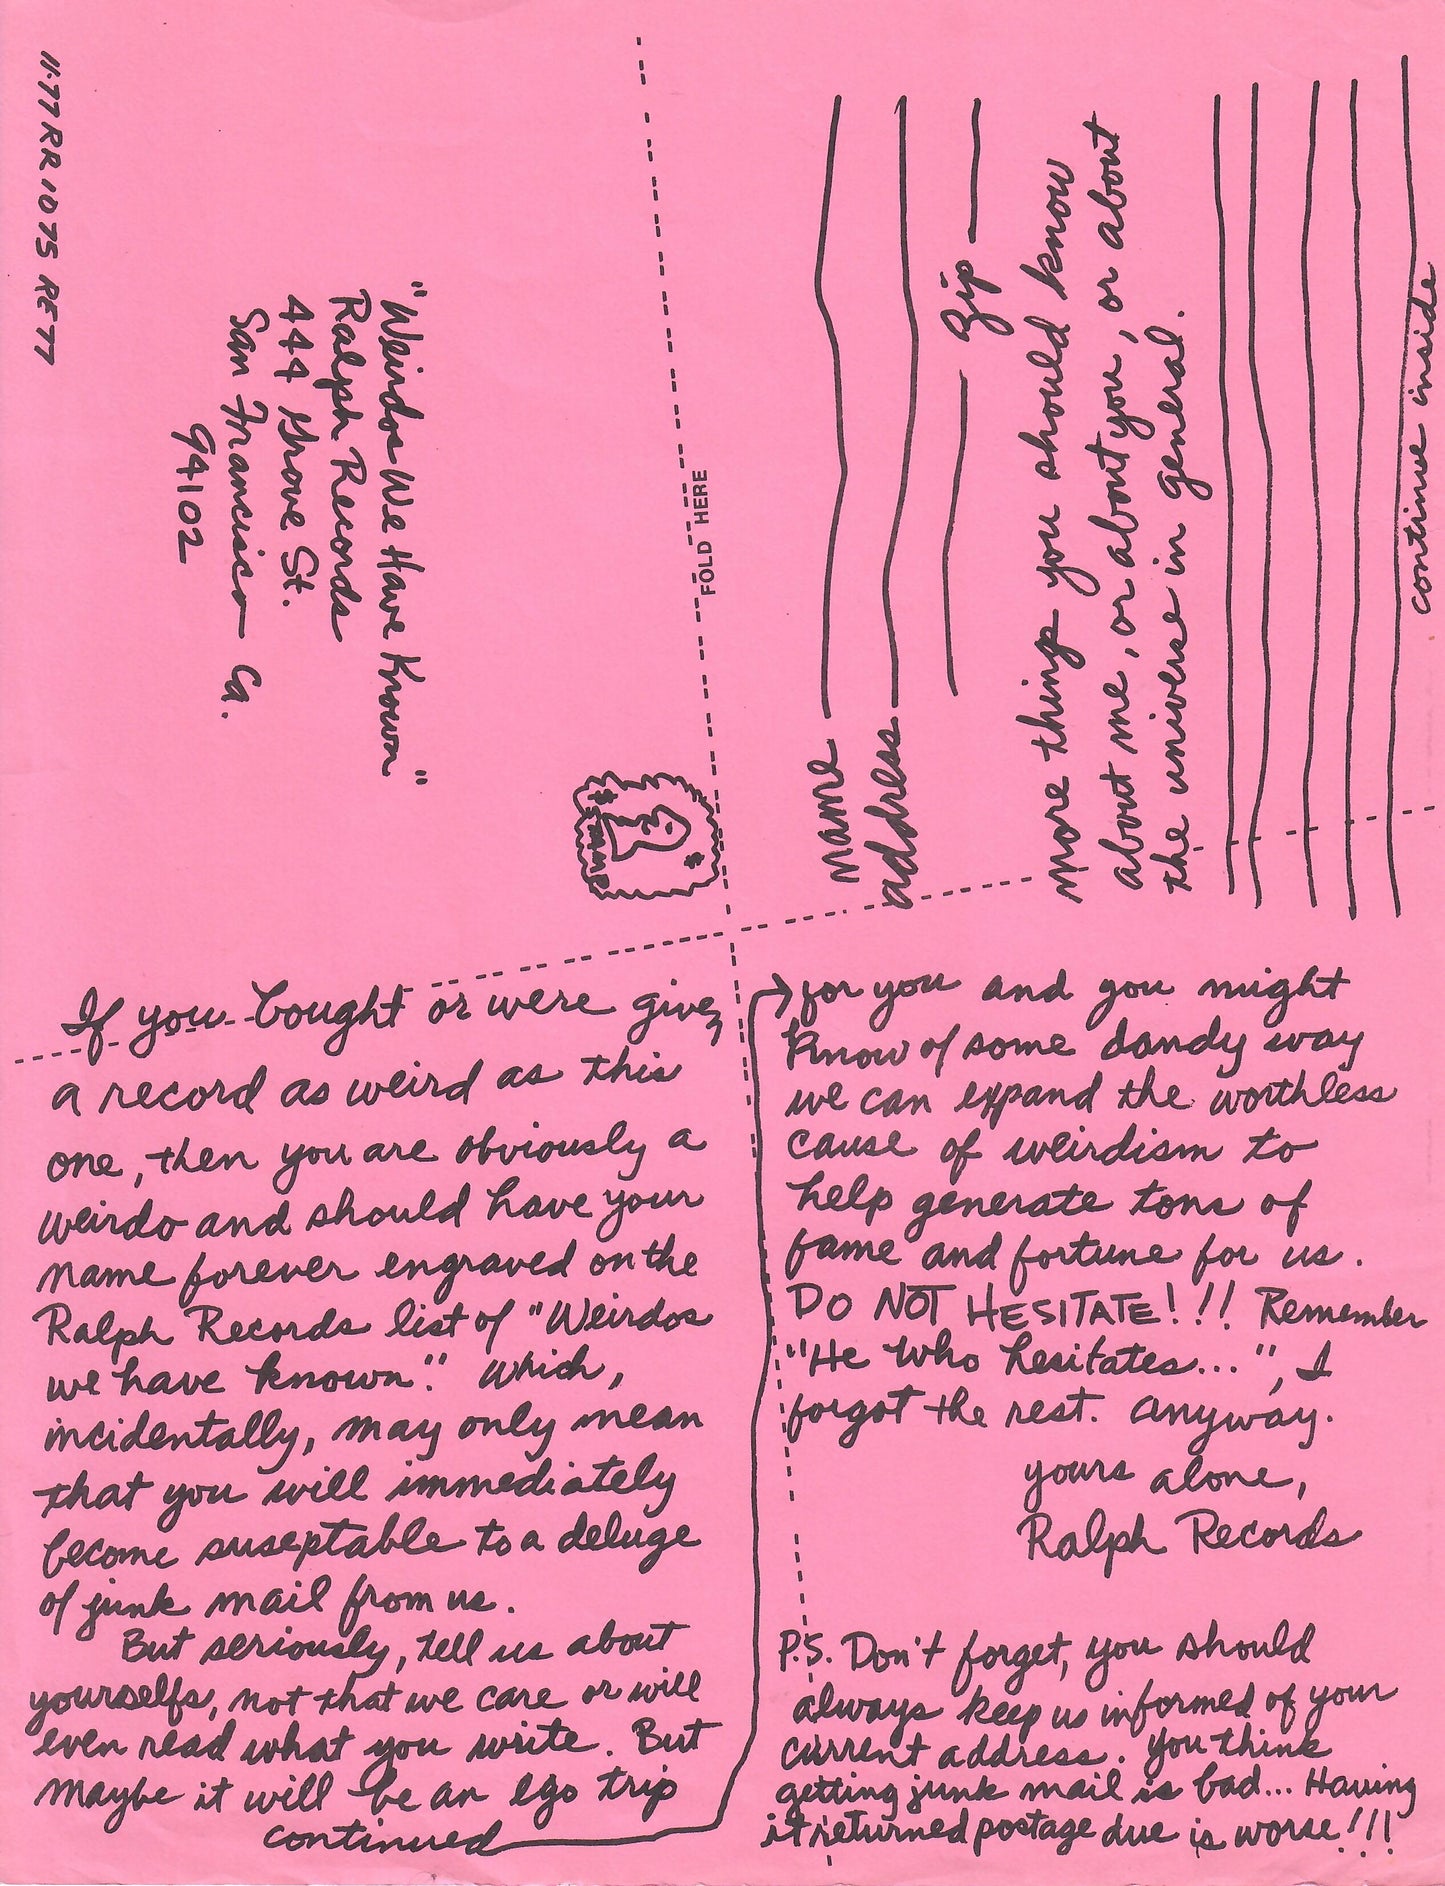 11-77 RR 1075 RE 77
"Weirdos We Have Known"
Ralph Records
444 Grove St.
San Francisco Ca.
94102
FOLD HERE
stamp
name
address
zip
more things you should know
about me, or about you, or about
the universe in general.
continue inside
If you bought or were given
a record as weird as this
one, then you are obviously a
weirdo and should have your
name forever engraved on the
Ralph Records list of "Weirdos
we have known." Which,
incidentally, may only mean
that you will immediately
become suseptable to a deluge
of junk mail from us.
But seriously, tell us about
yourselfs, not that we care or will
even read what you write. But
maybe it will be an ego trip
continued
for you and you might
know of some dandy way
we can expand the worthless
cause of weirdism to
help generate tons of
fame and fortune for us.
DO NOT HESITATE!!! Remember
"He who hesitates...", I
forgot the rest. Anyway.
yours alone,
Ralph Records
P.S. Don't forget, you should
always keep us informed of your
current address. You think
getting junk mail is bad... Having
it returned postage due is worse!!!